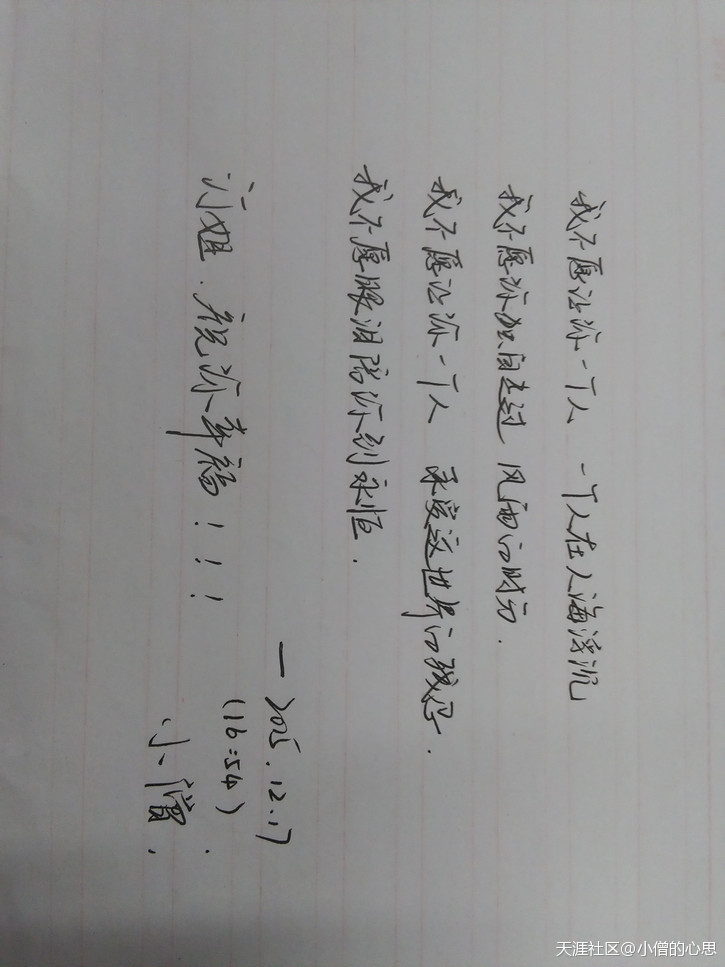 我不愿让你一个人 一个人在人海浮沉
我不愿你独自走过 风雨的时分.
我不愿让你一个人 承受这世界的残忍.
我不愿眼泪陪你到永恒.
姐.祝你幸福!!!
— 2025.12.17
(16:54).
小僧.
天涯社区@小僧的心思